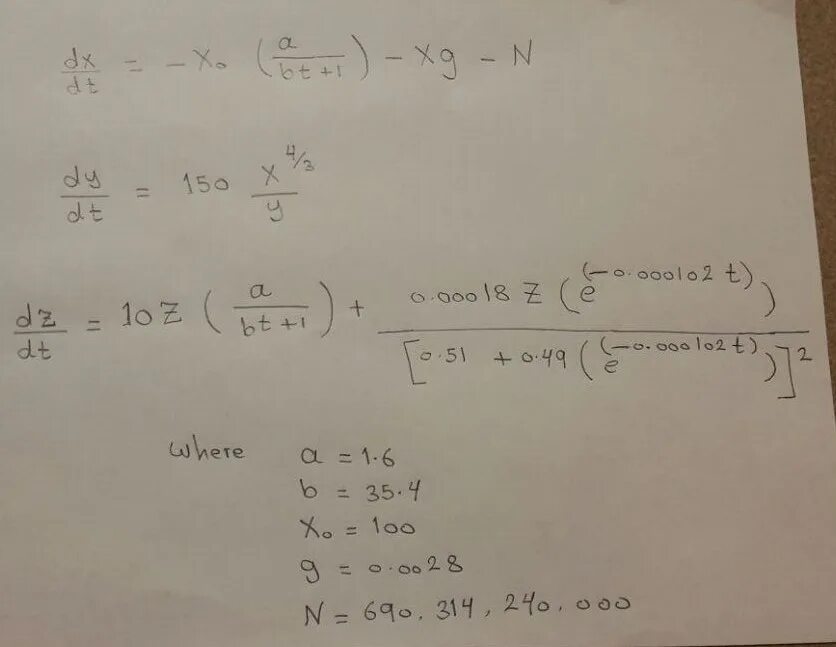 dx/dt = -X₀ (a/(bt+1)) - Xg - N
dy/dt = 150 x^(4/3)/y
dz/dt = 10Z (a/(bt+1)) + 0.00018 Z (e^(-0.000102 t))/[0.51 + 0.49 (e^(-0.000102 t))]²
where a = 1.6
b = 35.4
X₀ = 100
g = 0.0028
N = 690,314,240,000